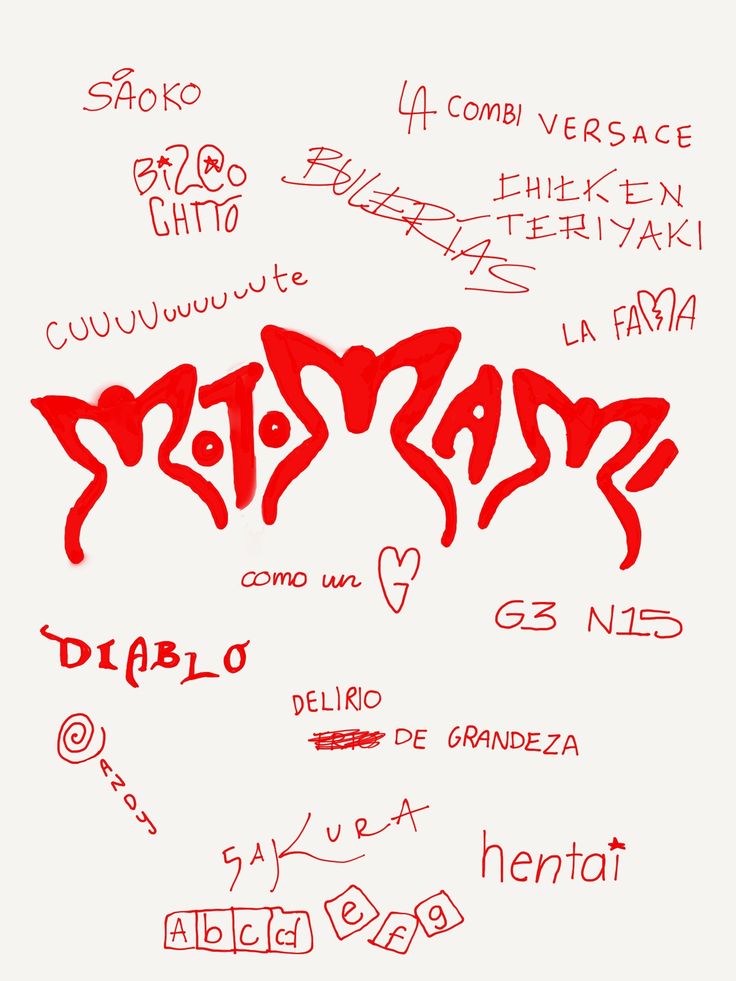 SAOKO
LA COMBI VERSACE
BiZCO
CHITO
BULERÍAS
CHICKEN
TERIYAKI
CUUUUuuuuuute
LA FAMA
MOTOMAMi
como un G
G3 N15
DIABLO
DELIRIO
DE GRANDEZA
CANDY
SAKURA
hentai
A b c cd e f g